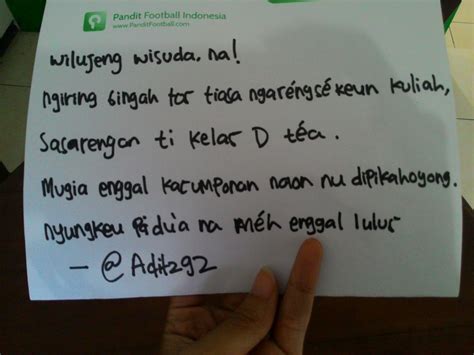 Pandit Football Indonesia
www.PanditFootball.com
Wilujeng wisuda, na!
ngiring bingah tos tiasa ngaréngsékeun kuliah,
Sasarengan ti kelas D téa.
Mugia enggal katumponan naon nu dipikahoyong.
nyungkeun pidu'a na méh enggal lulus
— @Adit292